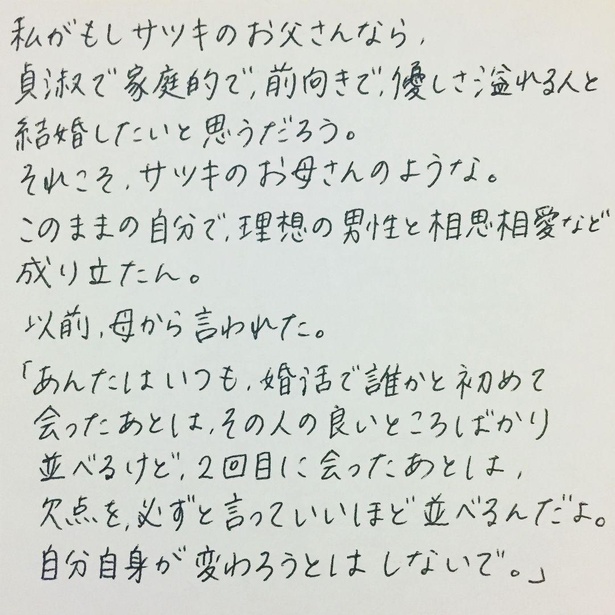 私がもしサツキのお父さんなら,
貞淑で家庭的で,前向きで,優しさ溢れる人と
結婚したいと思うだろう。
それこそ,サツキのお母さんのような。
このままの自分で,理想の男性と相思相愛など
成り立たん。
以前,母から言われた。
「あんたはいつも,婚活で誰かと初めて
会ったあとは,その人の良いところばかり
並べるけど,2回目に会ったあとは,
欠点を,必ずと言っていいほど並べるんだよ。
自分自身が変わろうとはしないで。」